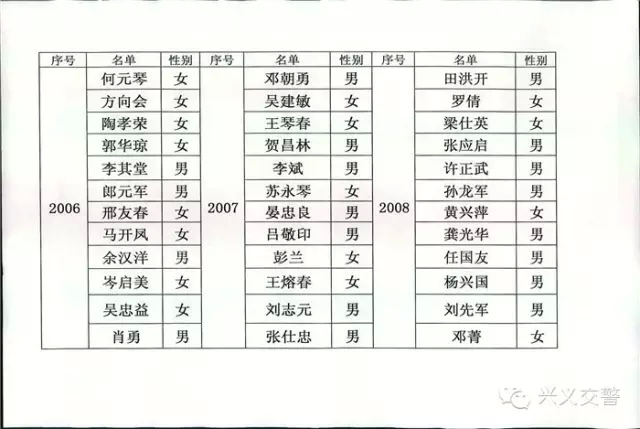 序号 名单 性别 序号 名单 性别 序号 名单 性别
何元琴 女 邓朝勇 男 田洪开 男
方向会 女 吴建敏 女 罗倩 女
陶孝荣 女 王琴春 女 梁仕英 女
郭华琼 女 贺昌林 男 张应启 男
李其堂 男 李斌 男 许正武 男
郎元军 男 苏永琴 女 孙龙军 男
2006 邢友春 女 2007 晏忠良 男 2008 黄兴萍 女
马开凤 女 吕敬印 男 龚光华 男
余汉洋 男 彭兰 女 任国友 男
岑启美 女 王熔春 女 杨兴国 男
吴忠益 女 刘志元 男 刘先军 男
肖勇 男 张仕忠 男 邓菁 女
兴义交警